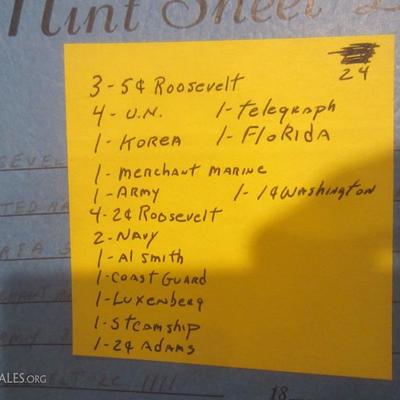 Mint Sheet
24
3-5¢ Roosevelt
4-U.N. 1-Telegraph
1-Korea 1-Florida
1-merchant marine
1-Army 1-1¢Washington
4-2¢ Roosevelt
2-Navy
1-Al Smith
1-Coast Guard
1-Luxenberg
1-Steamship
1-2¢ Adams
18
ALES.ORG